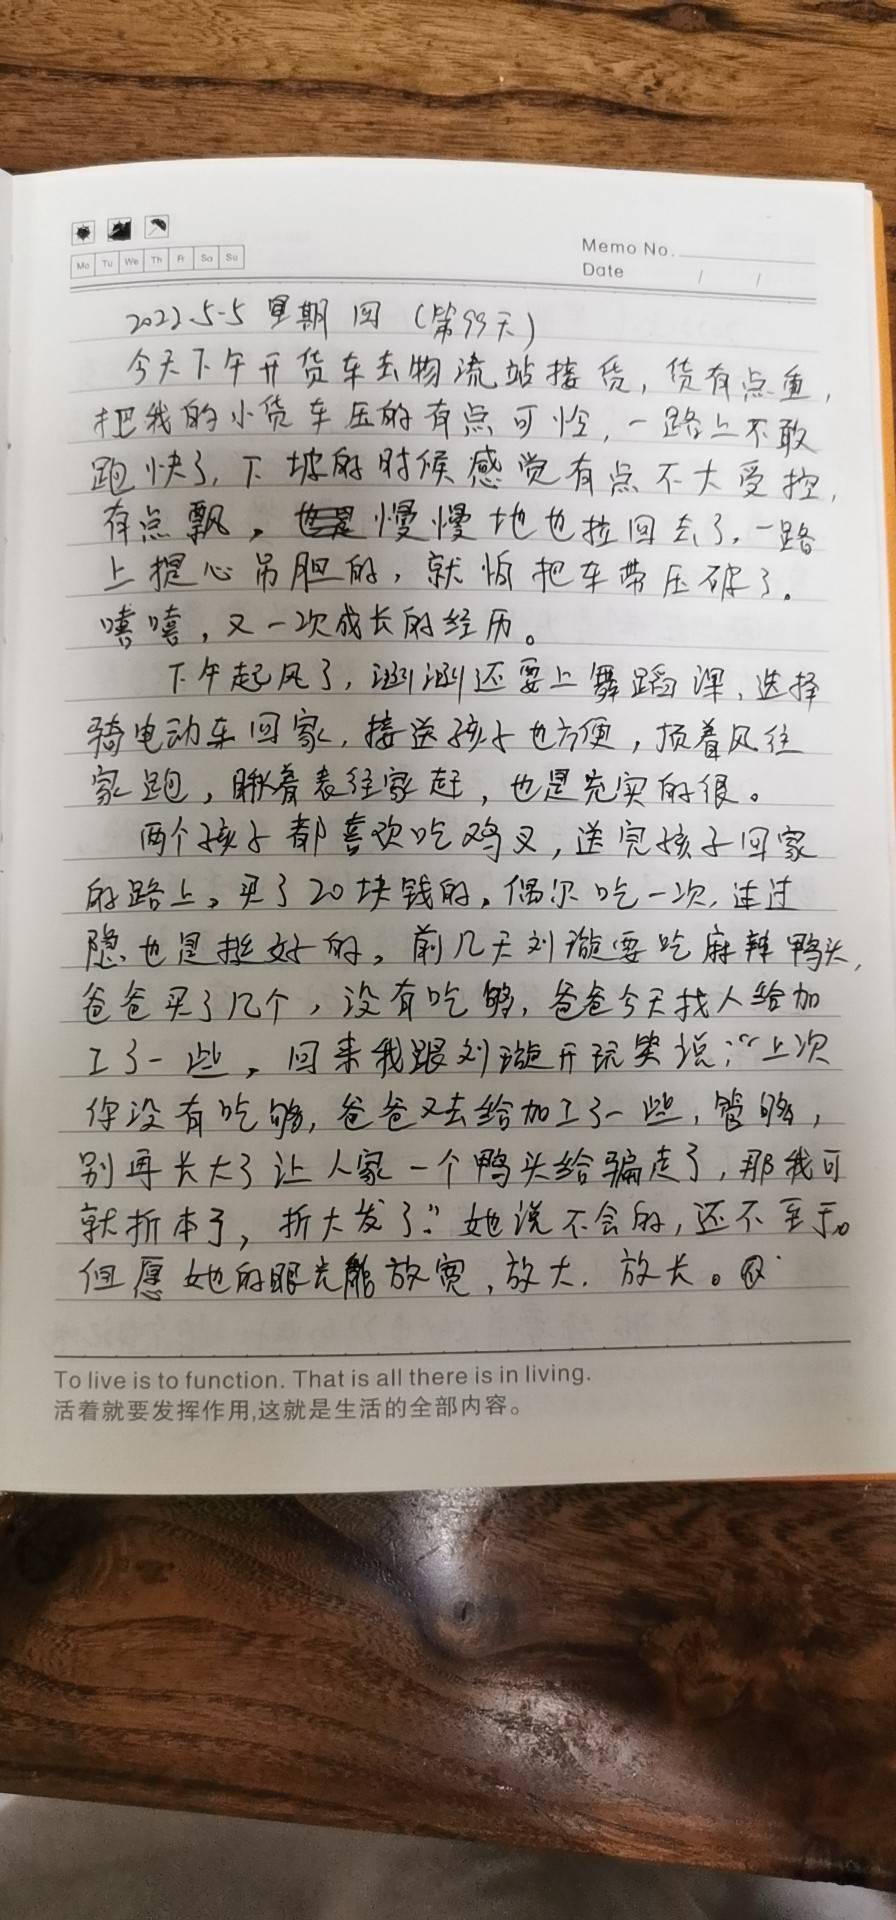 Mo Tu We Th Fr Sa Su
Memo No.
Date / /
2022.5.5 星期四 (第99天)
今天下午开货车去物流站接货,货有点重,
把我的小货车压的有点可怜,一路上不敢
跑快了,下坡的时候感觉有点不大受控,
有点飘,慢慢地也拉回去了,一路
上提心吊胆的,就怕把车带压破了。
嘻嘻,又一次成长的经历。
下午起风了,涵涵还要上舞蹈课,选择
骑电动车回家,接送孩子也方便,顶着风往
家跑,瞅着表往家赶,也是充实的很。
两个孩子都喜欢吃鸡叉,送完孩子回家
的路上,买了20块钱的,偶尔吃一次,过
隐也是挺好的。前几天刘璇要吃麻辣鸭头,
爸爸买了几个,没有吃够,爸爸今天找人给加
工了一些,回来我跟刘璇开玩笑说:“上次
你没有吃够,爸爸又去给加工了一些,管够,
别再长大了让人家一个鸭头给骗走了,那我可
就折本了,折大发了”。她说不会的,还不至于。
但愿她的眼光能放宽,放大,放长。
To live is to function. That is all there is in living.
活着就要发挥作用,这就是生活的全部内容。